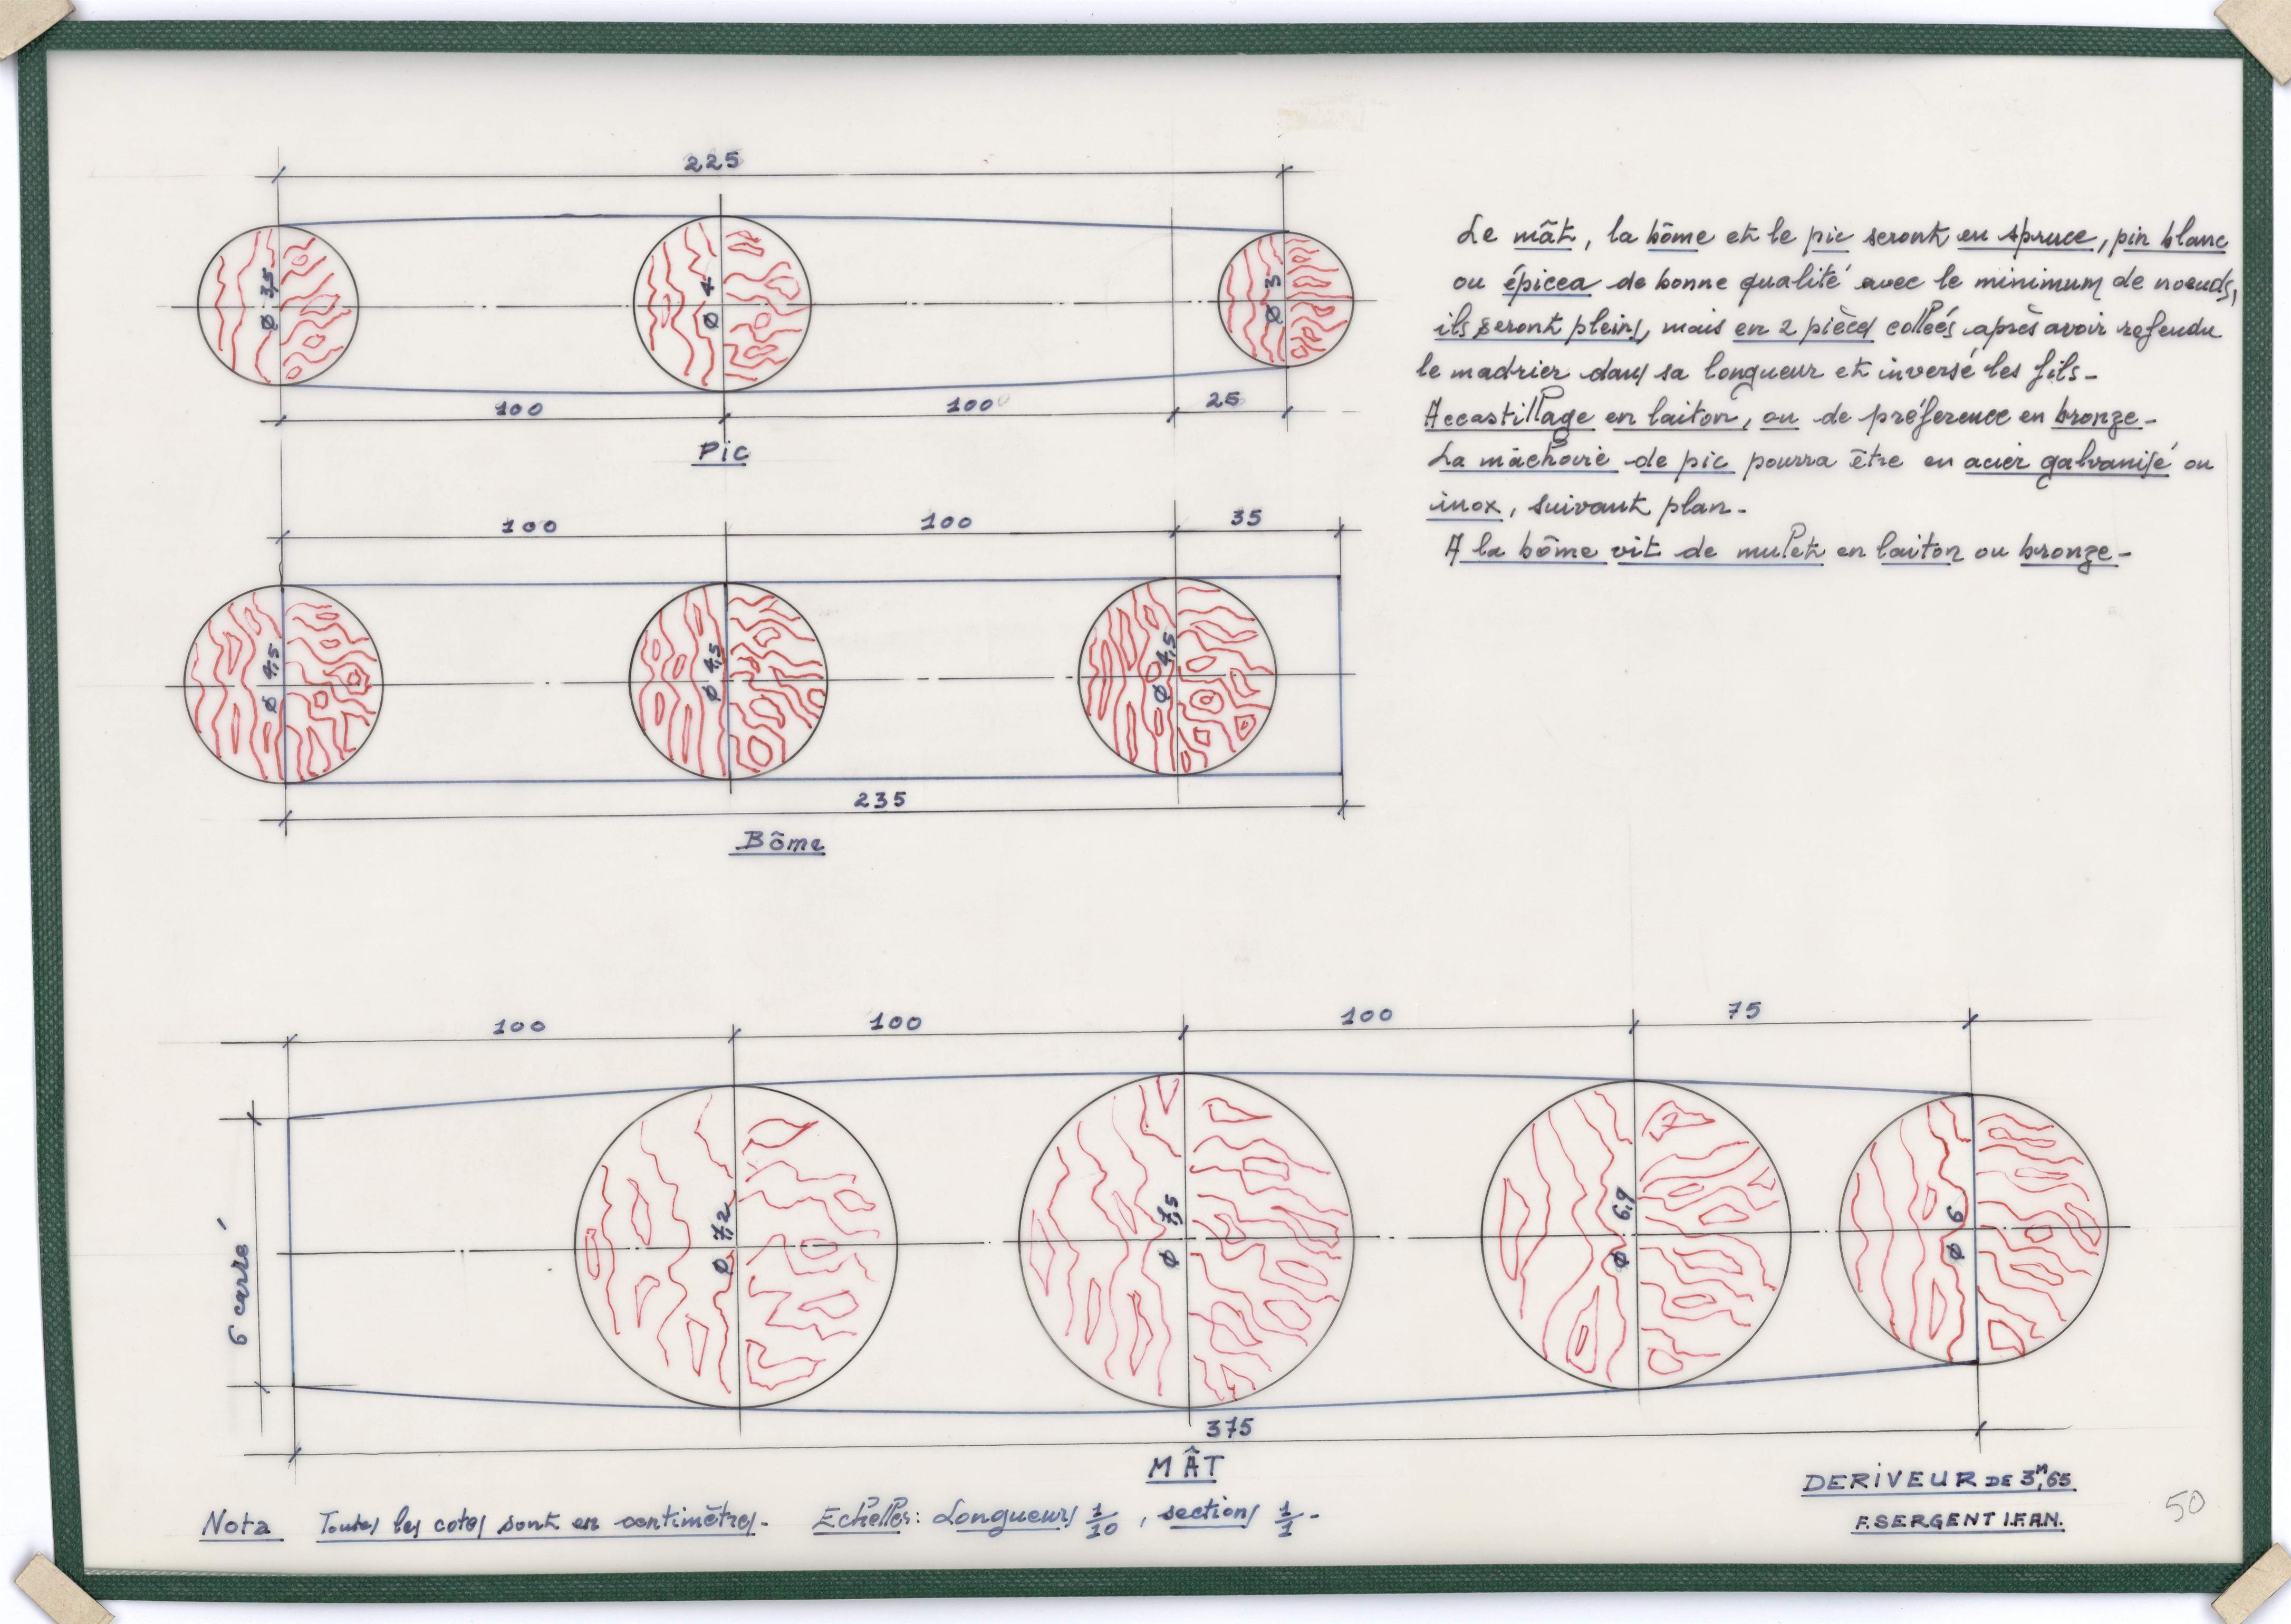 225
Ø 3,5
Ø 4
Ø 3
100
100
25
Pic
100
100
35
Ø 4,5
Ø 4,5
Ø 4,5
235
Bôme
Le mât, la bôme et le pic seront en spruce, pin blanc
ou épicea de bonne qualité avec le minimum de noeuds,
ils seront pleins, mais en 2 pièces collées après avoir refendu
le madrier dans sa longueur et inversé les fils-
Accastillage en laiton, ou de préference en bronze-
La mâchoire de pic pourra être en acier galvanisé ou
inox, suivant plan-
A la bôme vit de mulet en laiton ou bronze-
100
100
100
75
6 carré
Ø 7,2
Ø 7,5
Ø 6,9
Ø 6
375
MÂT
Nota Toutes les cotes sont en centimètres- Echelles: Longueurs 1/10, sections 1/1-
DERIVEUR DE 3m,65
F. SERGENT I.F.A.N.
50